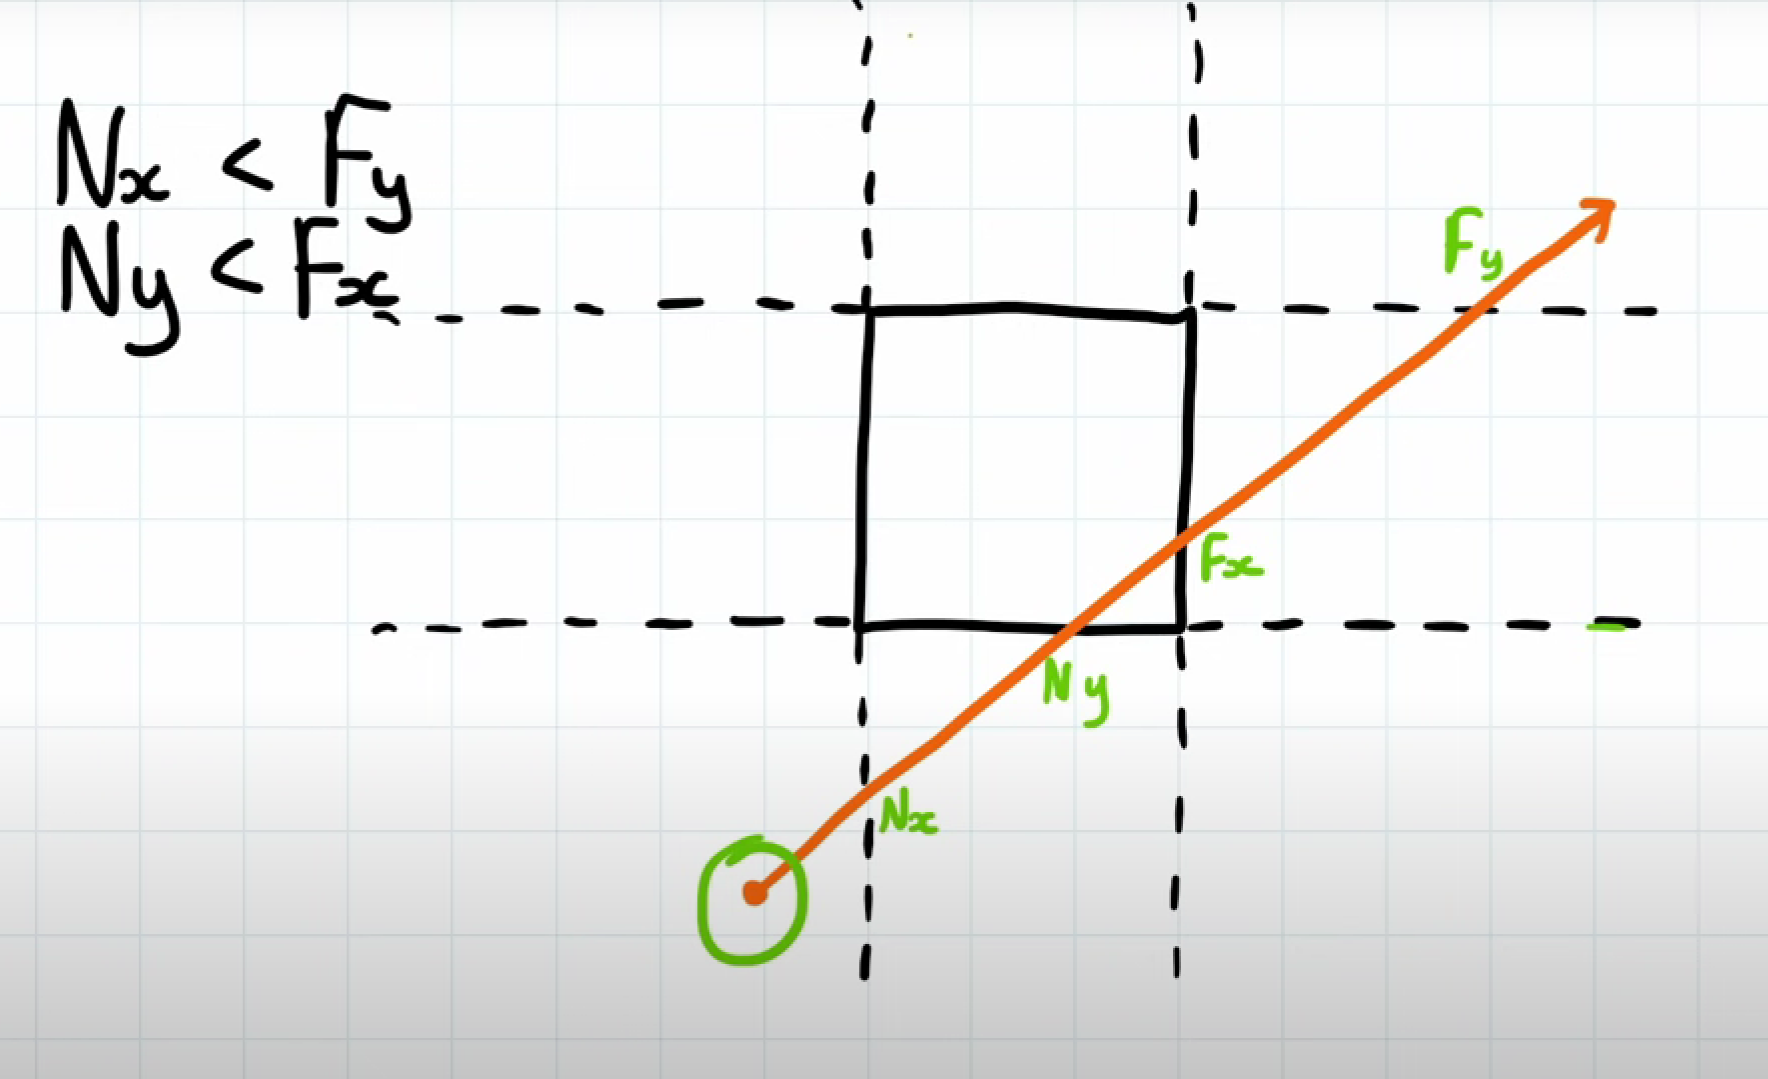 Nx < Fy
Ny < Fx
Fy
Fx
Ny
Nx